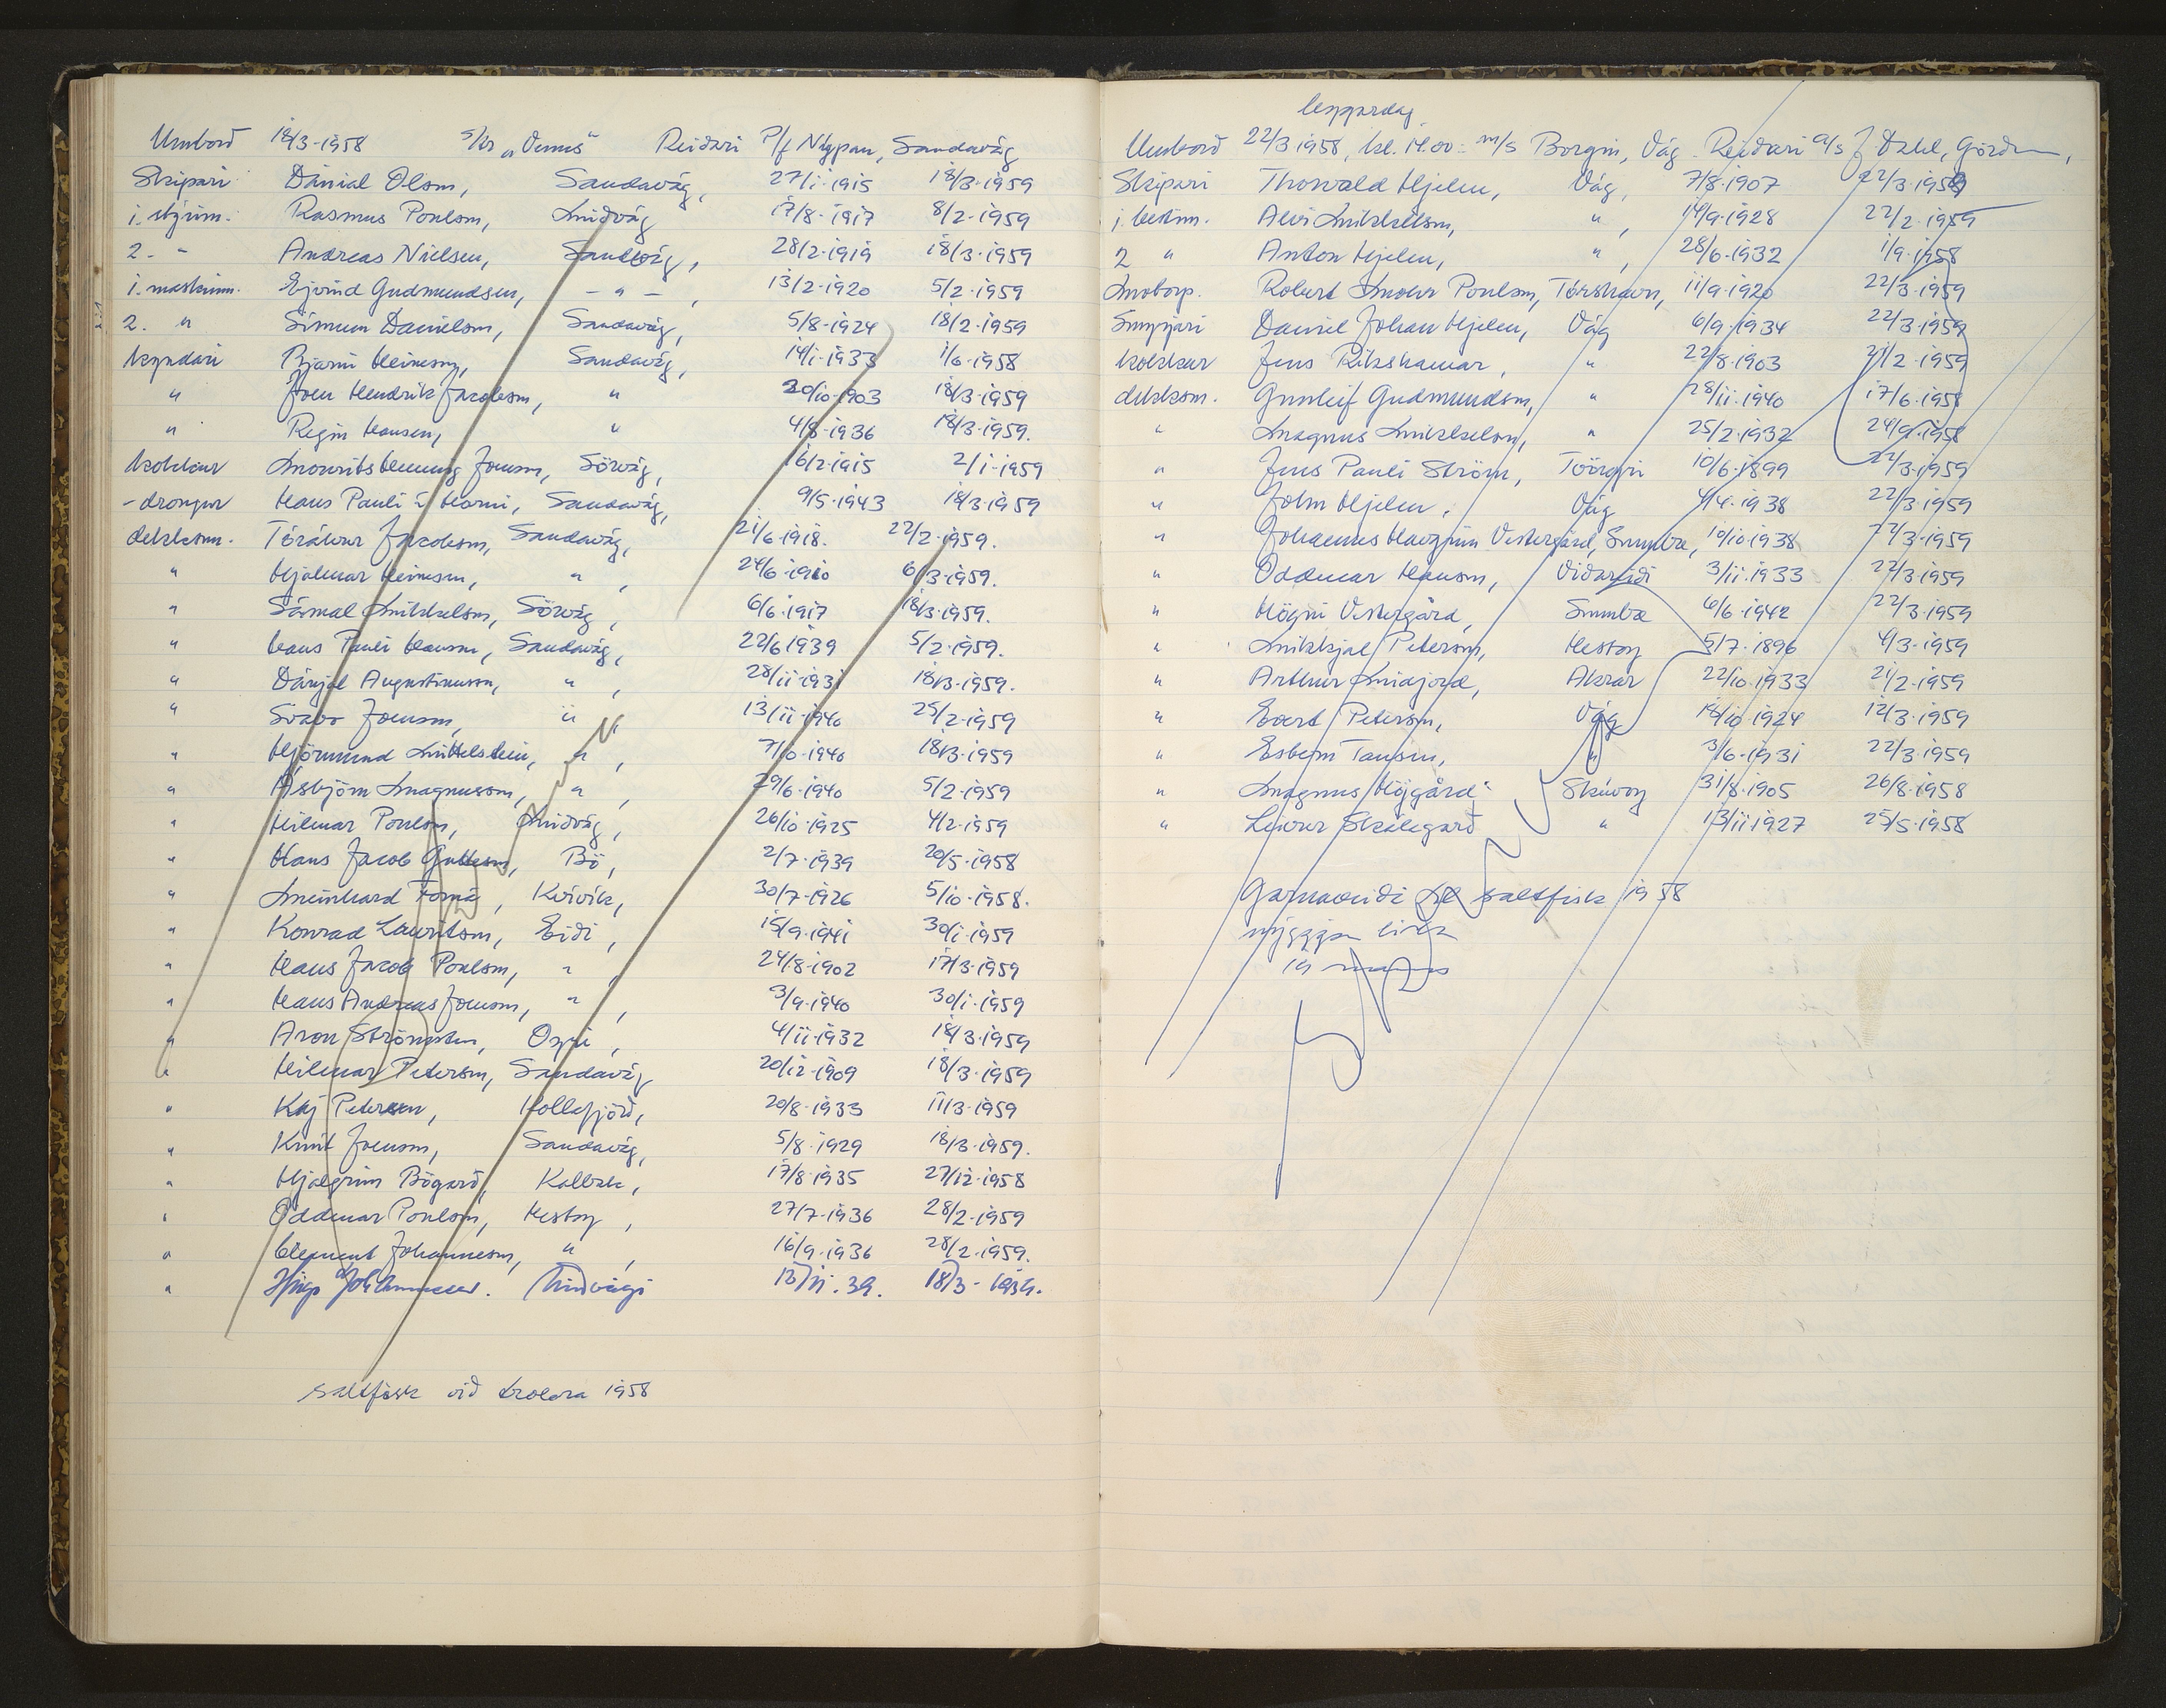 Umborð 18/3-1958 s/tr „Venus" Reiðari P/f Nýpan, Sandavág
Skipari Dánial Olsen, Sandavág, 27/1-1915 18/3-1959
1. stýrim. Rasmus Poulsen, Miðvág 17/8-1917 8/2-1959
2. - " - Andreas Nielsen, Sandavág, 28/2-1919 18/3-1959
1. maskinm. Ejvind Gudmundsen, - " - , 13/2-1920 5/2-1959
2. " Símun Danielsen, Sandavág, 5/8-1924 18/2-1959
kyndari Bjarni Heinesen, Sandavág, 14/1-1933 1/6-1958
" Joen Hendrik Jacobsen, " 20/10-1903 18/3-1959
" Regin Hansen, " 4/8-1936 18/3-1959.
kokkur Mourits Henning Joensen, Sörvág, 16/2-1915 2/1-1959
- drongur Hans Pauli í Horni, Sandavág, 9/5-1943 18/3-1959
dekksm. Tórálvur Jacobsen, Sandavág, 21/6-1918. 22/2-1959.
" Hjálmar Heinesen, " , 24/6-1910 6/3-1959.
" Sámal Mikkelsen, Sörvág, 6/6-1917 18/3-1959.
" Hans Pauli Hansen, Sandavág, 22/6 1939 5/2-1959.
" Dánjal Augustinussen, " , 28/11-1931 18/3-1959.
" Joensen, " 13/11-1940 25/2-1959
" Hjörmund Mittelstein, " , 7/10-1940 18/3-1959
" Ásbjörn Magnussen, " , 29/6-1940 5/2-1959
" Hilmar Poulsen, Miðvág, 26/10-1925 4/2-1959
" Hans Jacob Guttesen, Bö, 2/7-1939 20/5-1958
" Meinhard Forná, Kvívík, 30/7-1926 5/10-1958.
" Konrad Lauritsen, Eiði, 15/9-1941 30/1-1959
" Hans Jacob Poulsen, " , 24/8-1902 17/3-1959
" Hans Andreas Joensen, " , 3/9-1940 30/1-1959
" Aron Strömsten, Oyri, 4/11-1932 18/3-1959
" Hilmar Petersen, Sandavág 20/12-1909 18/3-1959
" Kaj Petersen, Kollefjörð, 20/8-1933 11/3-1959
" Knút Joensen, Sandavág, 5/8-1929 18/3-1959.
" Hjalgrím Bögarð, Kalbak, 17/8-1935 27/12-1958
" Oddmar Poulsen, Hestoy, 27/7-1936 28/2-1959
" Clement Johannesen, " , 16/9-1936 28/2-1959.
" Johannesen. Miðvági 13/11.39. 18/3-1959.
saltfisk við trolara 1958
leygardag
Umborð 22/3 1958, kl. 14.00 = m/s Borgin, Vág - Reiðari a/s J. Dahl,
Skipari Thorvald Hjelm, Vág, 7/8-1907 22/3-1959
1. bestm. Alvi Mikkelsen, " , 14/9-1928 22/2-1959
2 " Anton Hjelm, " , 28/6-1932 1/9-1958
Motorp. Robert Mohr Poulsen, Tórshavn, 11/9-1920 22/3-1959
Smyrjari Daniel Johan Hjelm, Vág 6/9-1934 22/3-1959
kokkur Jens Kikshamar, " 22/8-1903 21/2-1959
dekksm. Gunleif Gudmundsen, " 28/11-1940 17/6-1958
" Magnus Mikkelsen, " 25/2-1932 24/9-1958
" Jens Pauli Ström, Töroyri 10/6-1899 22/3-1959
" John Hjelm, Vág 4/4-1938 22/3-1959
" Johannes Havgrím Vestergård, Sumba, 10/10-1938 22/3-1959
" Oddmar Hansen, Viðareiði 3/11-1933 22/3-1959
" Högni Vestergård, Sumba 6/6-1942 22/3-1959
" Mikkjal Petersen, Hestoy 5/7-1896 4/3-1959
" Arthur Midjord, Akrar 22/10-1933 21/2-1959
" Evert Petersen, Vág 14/10-1924 12/3-1959
" Esbern Tausen, " 3/6-1931 22/3-1959
" Magnus Højgård, Skúvoy 31/8-1905 26/8-1958
" Leivur Skálegarð " 13/11 1927 25/5-1958
Garnaveiði saltfisk 1958